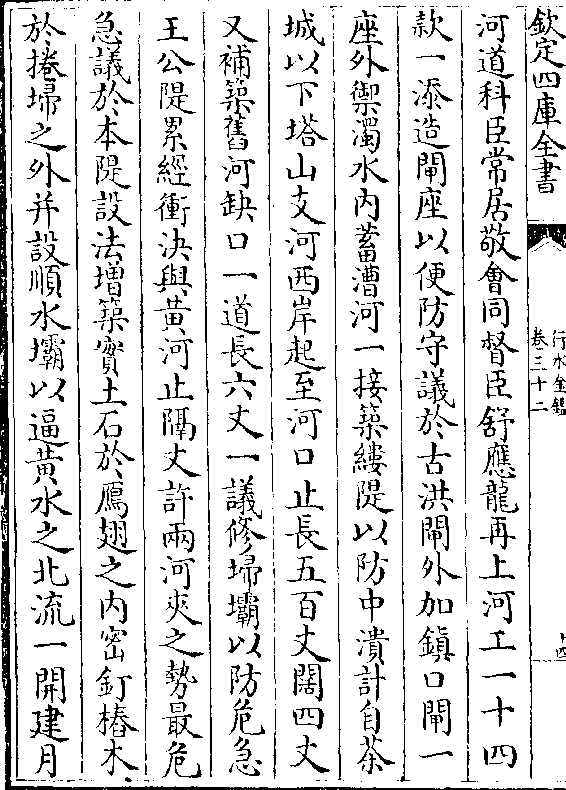 欽定四庫全書
行水金鑑
卷三十二
十四
河道科臣常居敬會同督臣舒應龍再上河工一十四
款一添造閘座以便防守議於古洪閘外加鎮口閘一
座外禦濁水内蓄漕河一接築縷隄以防中潰計自茶
城以下塔山支河西岸起至河口止長五百丈闊四丈
又補築舊河缺口一道長六丈一議修埽壩以防危急
王公隄累經衝決與黄河止隔丈許兩河夾之勢最危
急議於本隄設法增築實土石於鴈翅之内密釘樁木
於捲埽之外并設順水壩以逼黄水之北流一開建月